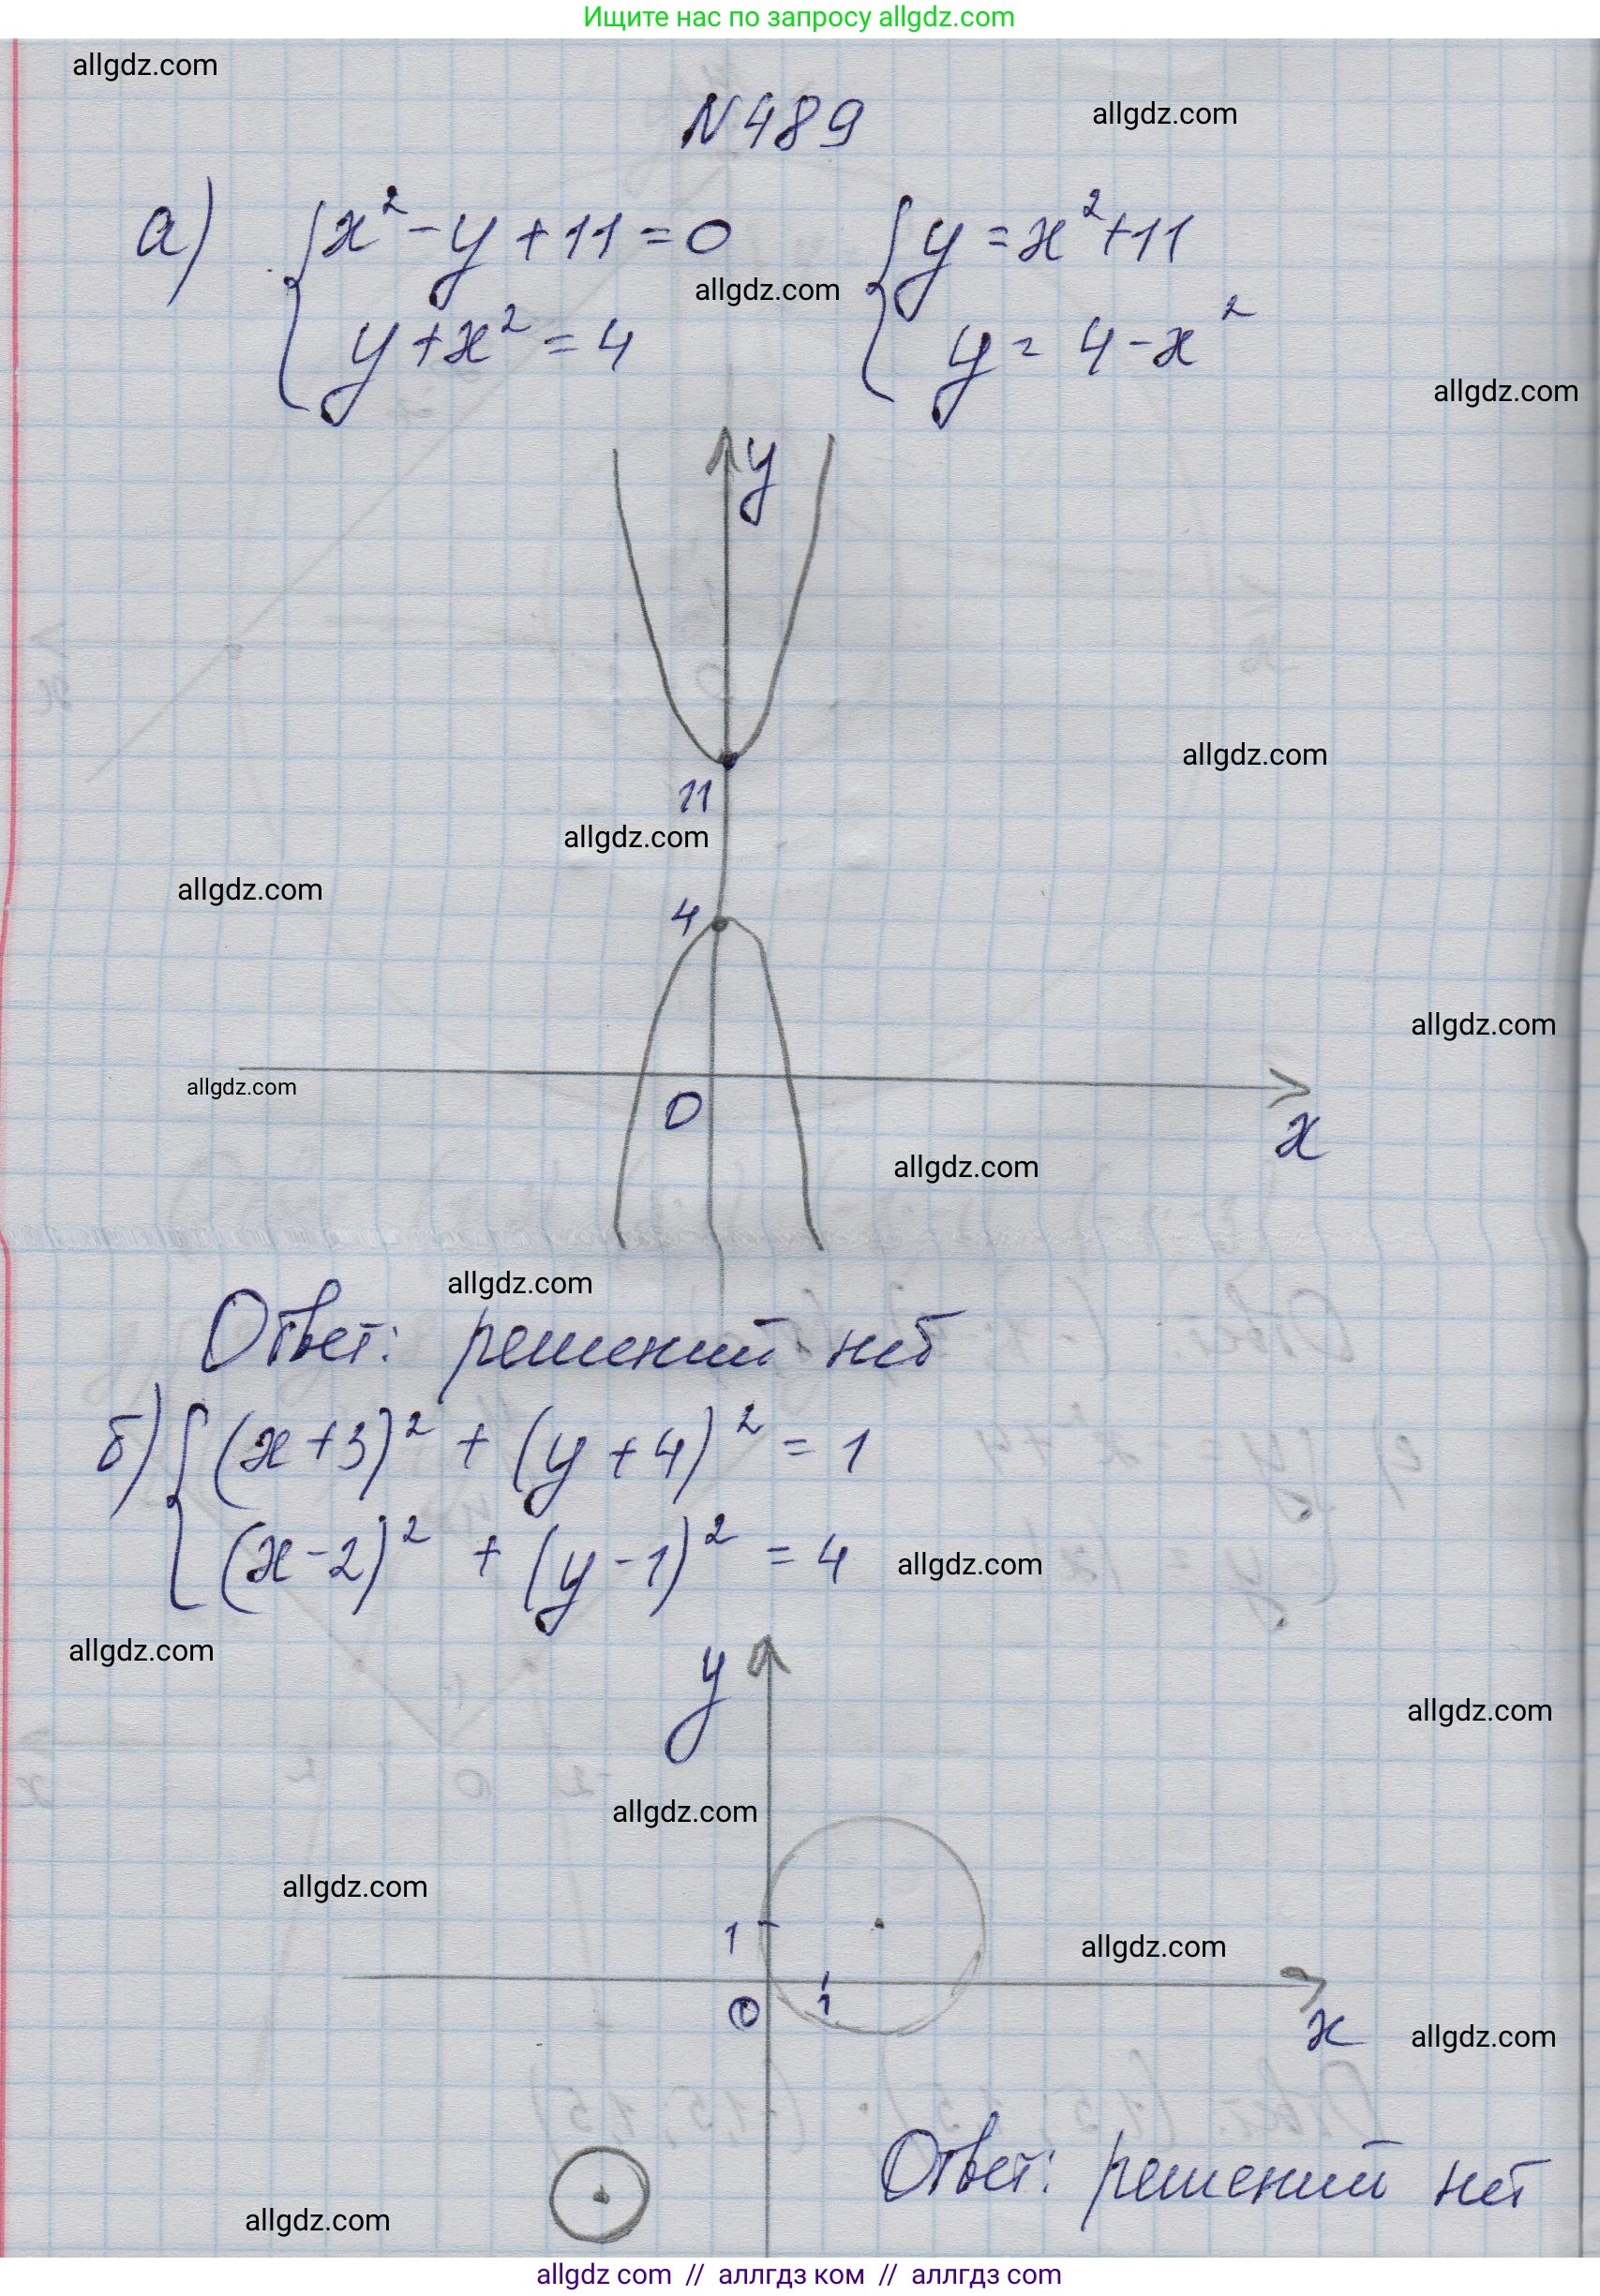 Ищите нас по запросу allgdz.com
allgdz.com
N489
allgdz.com
а) { x² - y + 11 = 0
{ y = x² + 11
allgdz.com
y + x² = 4
y = 4 - x²
allgdz.com
y
allgdz.com
11
allgdz.com
allgdz.com
4
allgdz.com
allgdz.com
0
x
allgdz.com
allgdz.com
Ответ: решений нет
б) { (x + 3)² + (y + 4)² = 1
(x - 2)² + (y - 1)² = 4
allgdz.com
allgdz.com
y
allgdz.com
allgdz.com
allgdz.com
1
allgdz.com
0
1
x
allgdz.com
Ответ: решений нет
allgdz.com
allgdz com // аллгдз ком // аллгдз com